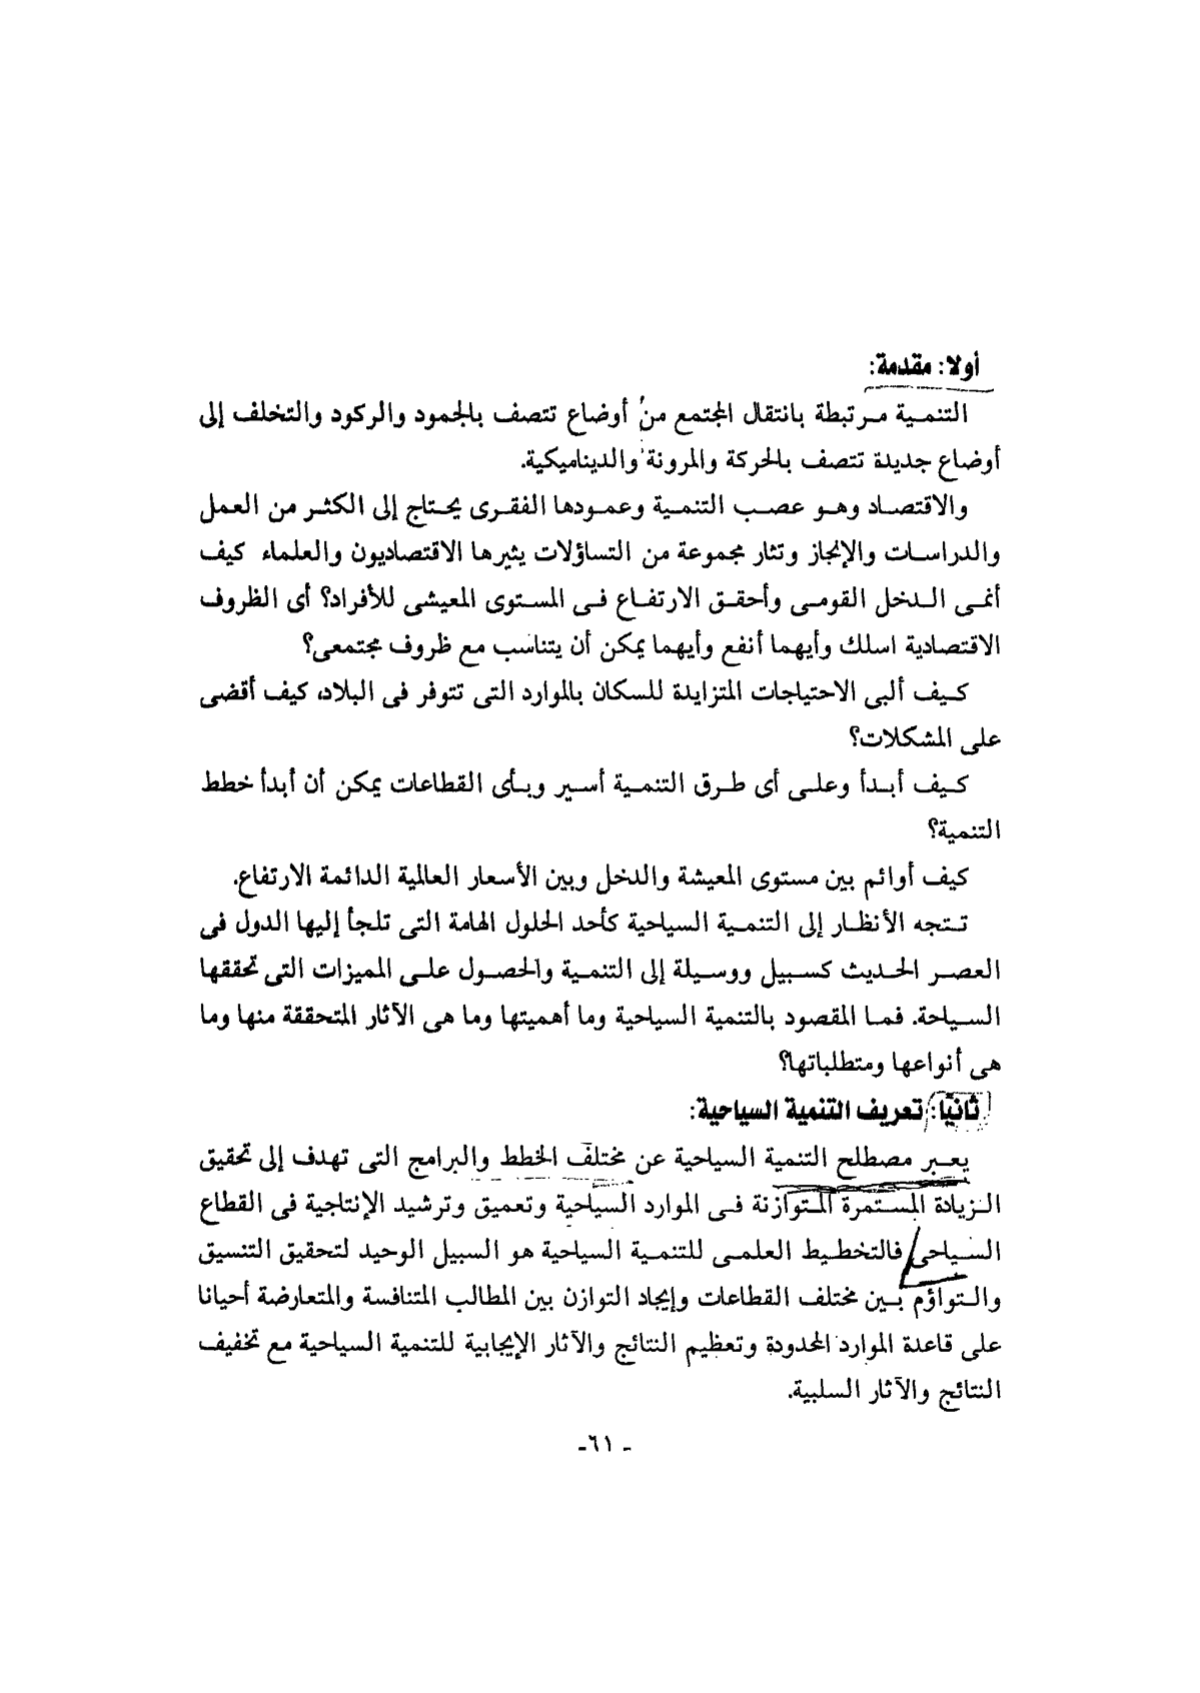 أولا: مقدمة:
التنمية مرتبطة بانتقال المجتمع من أوضاع تتصف بالجمود والركود والتخلف إلى
أوضاع جديدة تتصف بالحركة والمرونة والديناميكية.
والاقتصاد وهو عصب التنمية وعمودها الفقرى يحتاج إلى الكثر من العمل
والدراسات والإنجاز وتثار مجموعة من التساؤلات يثيرها الاقتصاديون والعلماء كيف
أنمى الدخل القومى وأحقق الارتفاع فى المستوى المعيشى للأفراد؟ أى الظروف
الاقتصادية اسلك وأيهما أنفع وأيهما يمكن أن يتناسب مع ظروف مجتمعى؟
كيف ألبى الاحتياجات المتزايدة للسكان بالموارد التى تتوفر فى البلاد، كيف أقضى
على المشكلات؟
كيف أبدأ وعلى أى طرق التنمية أسير وبأى القطاعات يمكن أن أبدأ خطط
التنمية؟
كيف أوائم بين مستوى المعيشة والدخل وبين الأسعار العالمية الدائمة الارتفاع.
تتجه الأنظار إلى التنمية السياحية كأحد الحلول الهامة التى تلجأ إليها الدول فى
العصر الحديث كسبيل ووسيلة إلى التنمية والحصول على المميزات التى تحققها
السياحة. فما المقصود بالتنمية السياحية وما أهميتها وما هى الآثار المتحققة منها وما
هى أنواعها ومتطلباتها؟
ثانيًا: تعريف التنمية السياحية:
يعبر مصطلح التنمية السياحية عن مختلف الخطط والبرامج التى تهدف إلى تحقيق
الزيادة المستمرة المتوازنة فى الموارد السياحية وتعميق وترشيد الإنتاجية فى القطاع
السياحى فالتخطيط العلمى للتنمية السياحية هو السبيل الوحيد لتحقيق التنسيق
والتواؤم بين مختلف القطاعات وإيجاد التوازن بين المطالب المتنافسة والمتعارضة أحيانا
على قاعدة الموارد المحدودة وتعظيم النتائج والآثار الإيجابية للتنمية السياحية مع تخفيف
النتائج والآثار السلبية.
- ٦١-